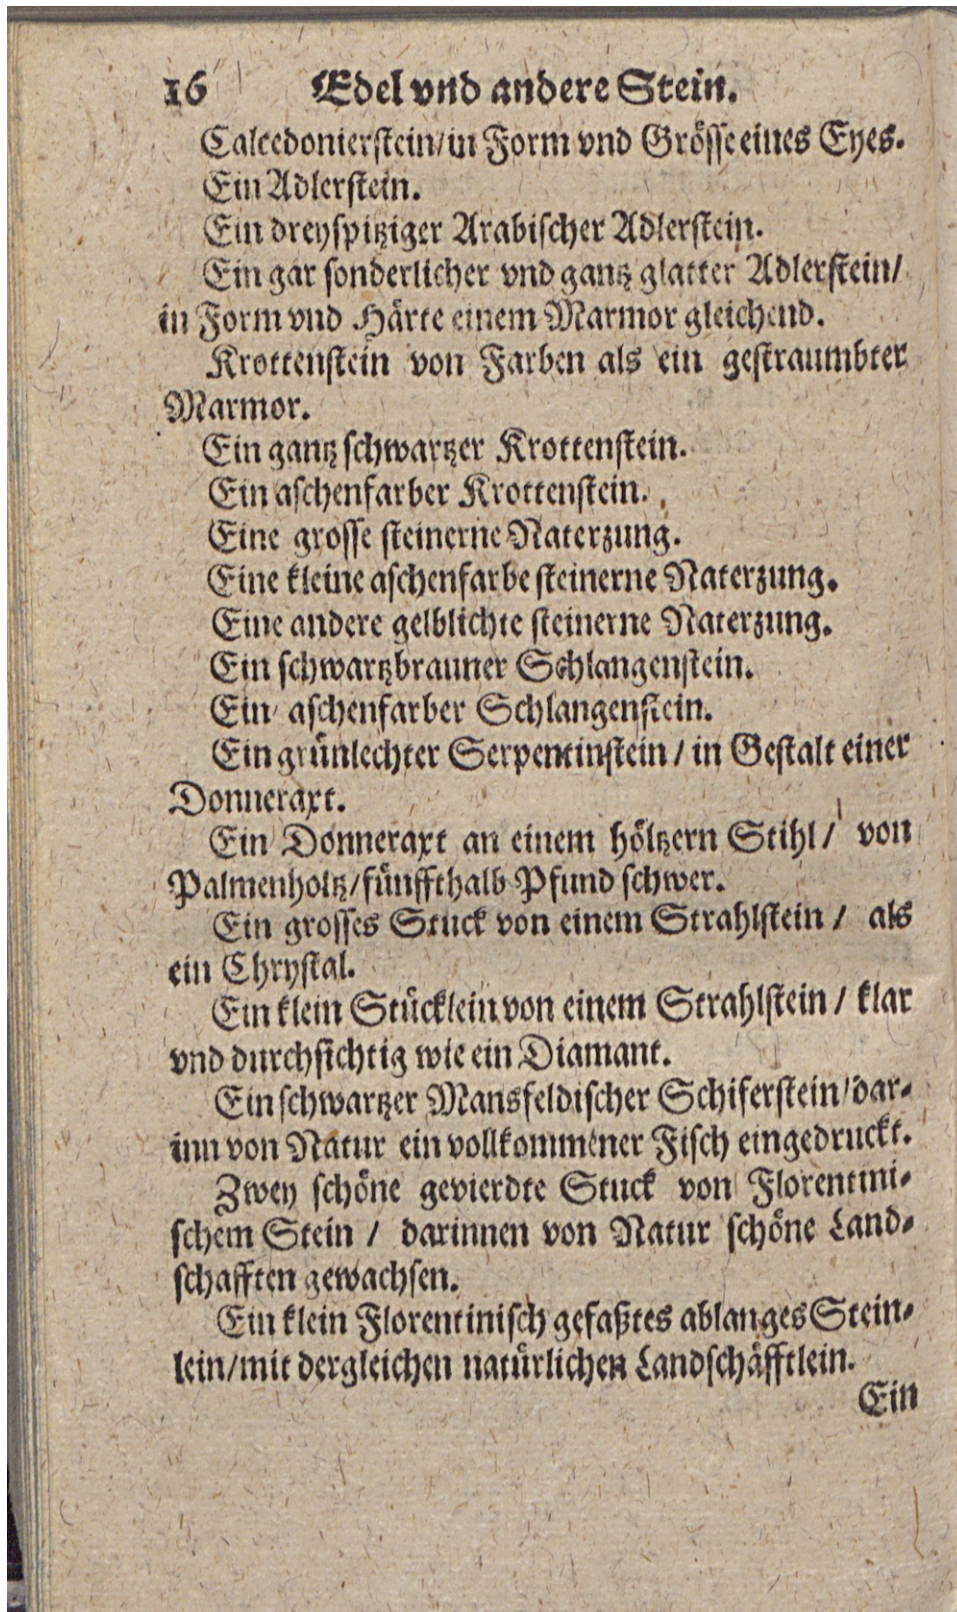 16 Edel vnd andere Stein.
Calcedonierstein/in Form vnd Grösse eines Eyes.
Ein Adlerstein.
Ein dreyspitziger Arabischer Adlerstein.
Ein gar sonderlicher vnd gantz glatter Adlerstein/
in Form vnd Härte einem Marmor gleichend.
Krottenstein von Farben als ein gestraumbter
Marmor.
Ein gantz schwartzer Krottenstein.
Ein aschenfarber Krottenstein.
Eine grosse steinerne Naterzung.
Eine kleine aschenfarbe steinerne Naterzung.
Eine andere gelblichte steinerne Naterzung.
Ein schwartzbrauner Schlangenstein.
Ein aschenfarber Schlangenstein.
Ein grünlechter Serpentinstein / in Gestalt einer
Donneraxt.
Ein Donneraxt an einem höltzern Stihl / von
Palmenholtz/fünffthalb Pfund schwer.
Ein grosses Stuck von einem Strahlstein / als
ein Chrystal.
Ein klein Stücklein von einem Strahlstein / klar
vnd durchsichtig wie ein Diamant.
Ein schwartzer Mansfeldischer Schiferstein/dar-
inn von Natur ein vollkommener Fisch eingedruckt.
Zwey schöne gevierdte Stuck von Florentini-
schem Stein / darinnen von Natur schöne Land-
schafften gewachsen.
Ein klein Florentinisch gefaßtes ablanges Stein-
lein/mit dergleichen natürlichen Landschäfftlein.
Ein